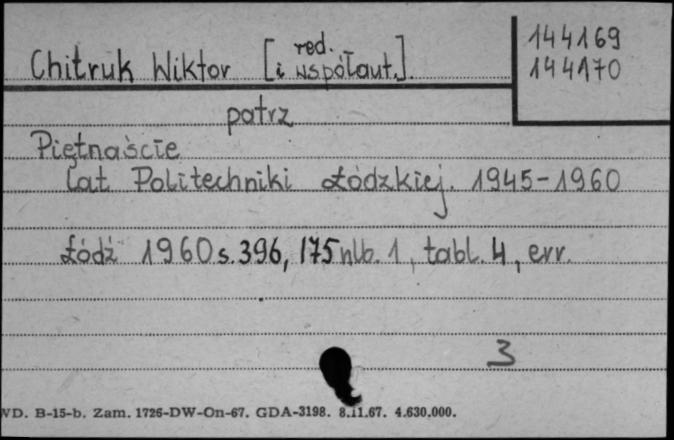 144169
144170
Chitruk Wiktor [red. i współaut.].
patrz
Piętnaście
lat Politechniki Łódzkiej. 1945-1960
Łódź 1960 s. 396, 175 nlb. 1, tabl. 4, err.
3
WD. B-15-b. Zam. 1726-DW-On-67. GDA-3198. 8.11.67. 4.630.000.